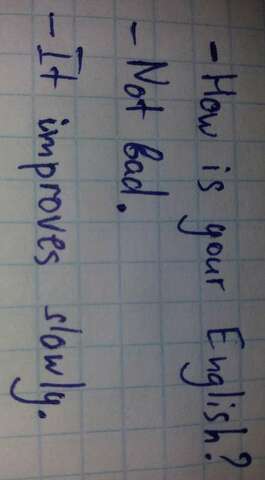 - How is your English?
- Not bad.
- It improves slowly.